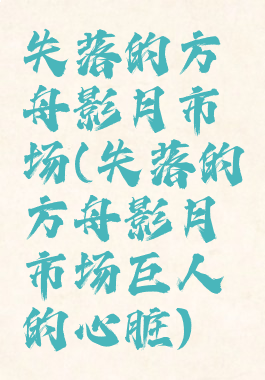 失落的方
舟影月市
场(失落的
方舟影月
市场巨人
的心脏)